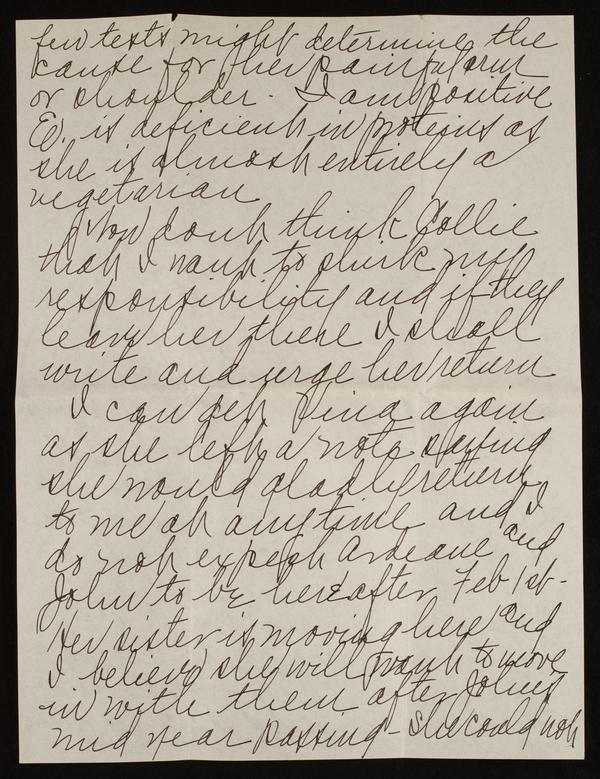 few tests might determine the
cause for her painful arm
or shoulder. I am positive
Ev. is deficient in proteins as
she is almost entirely a
vegetarian
Now don't think Dollie
that I want to shirk my
responsibility and if they
leave her there I shall
write and urge her return
I can get Tina again
as she left a note saying
she would gladly return
to me at anytime and I
do not expect Ardeane and
John to be here after Feb 1st -
Her sister is moving here and
I believe she will want to move
in with them after Johns
mid year passing - She could not